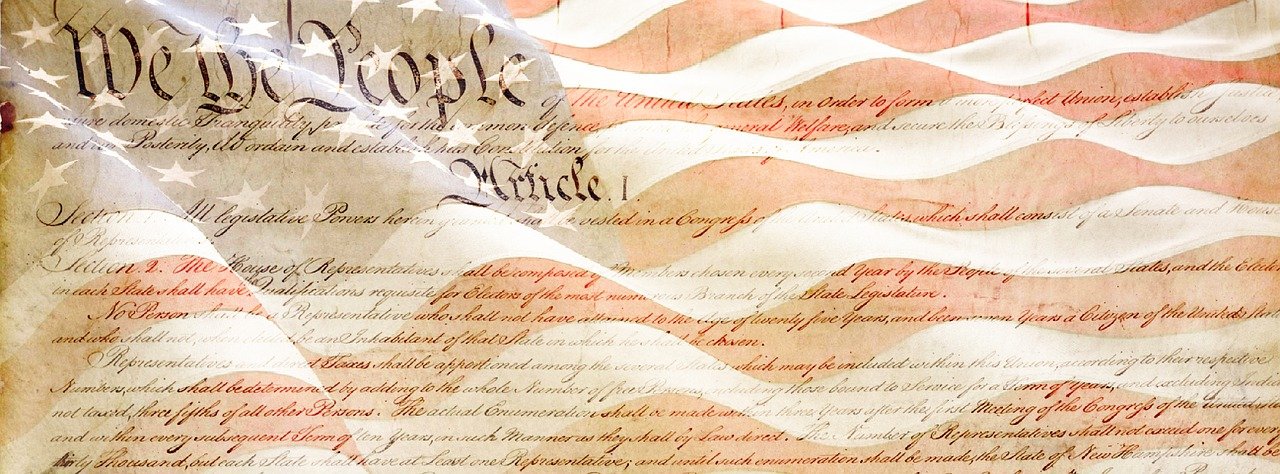 We the People of the United States, in Order to form a more perfect Union, establish Justice
domestic Tranquility, for the common defence, general Welfare, and secure the Blessings of Liberty to ourselves
and our Posterity, do ordain and establish this Constitution for the United States of America.
Article. I.
Section. 1. All legislative Powers herein granted shall be vested in a Congress of States, which shall consist of a Senate and House
of
Section. 2. The House of Representatives shall be composed of Members chosen every second Year by the People of the several States, and the
in each State shall have Qualifications requisite for Electors of the most numerous Branch of the State Legislature.
No Person shall be a Representative who shall not have attained to the Age of twenty five Years, and been seven Years a Citizen of the United
and who shall not, when elected, be an Inhabitant of that State in which he shall be chosen.
Representatives and direct Taxes shall be apportioned among the several States which may be included within this Union, according to their respective
Numbers, which shall be determined by adding to the whole Number of free Persons, including those bound to Service for a Term of Years, and excluding
not taxed, three fifths of all other Persons. The actual Enumeration shall be made within three Years after the first Meeting of the Congress of the United
and within every subsequent Term of ten Years, in such Manner as they shall by Law direct. The Number of Representatives shall not exceed one for every
thirty Thousand, but each State shall have at Least one Representative; and until such enumeration shall be made, the State of New Hampshire shall be